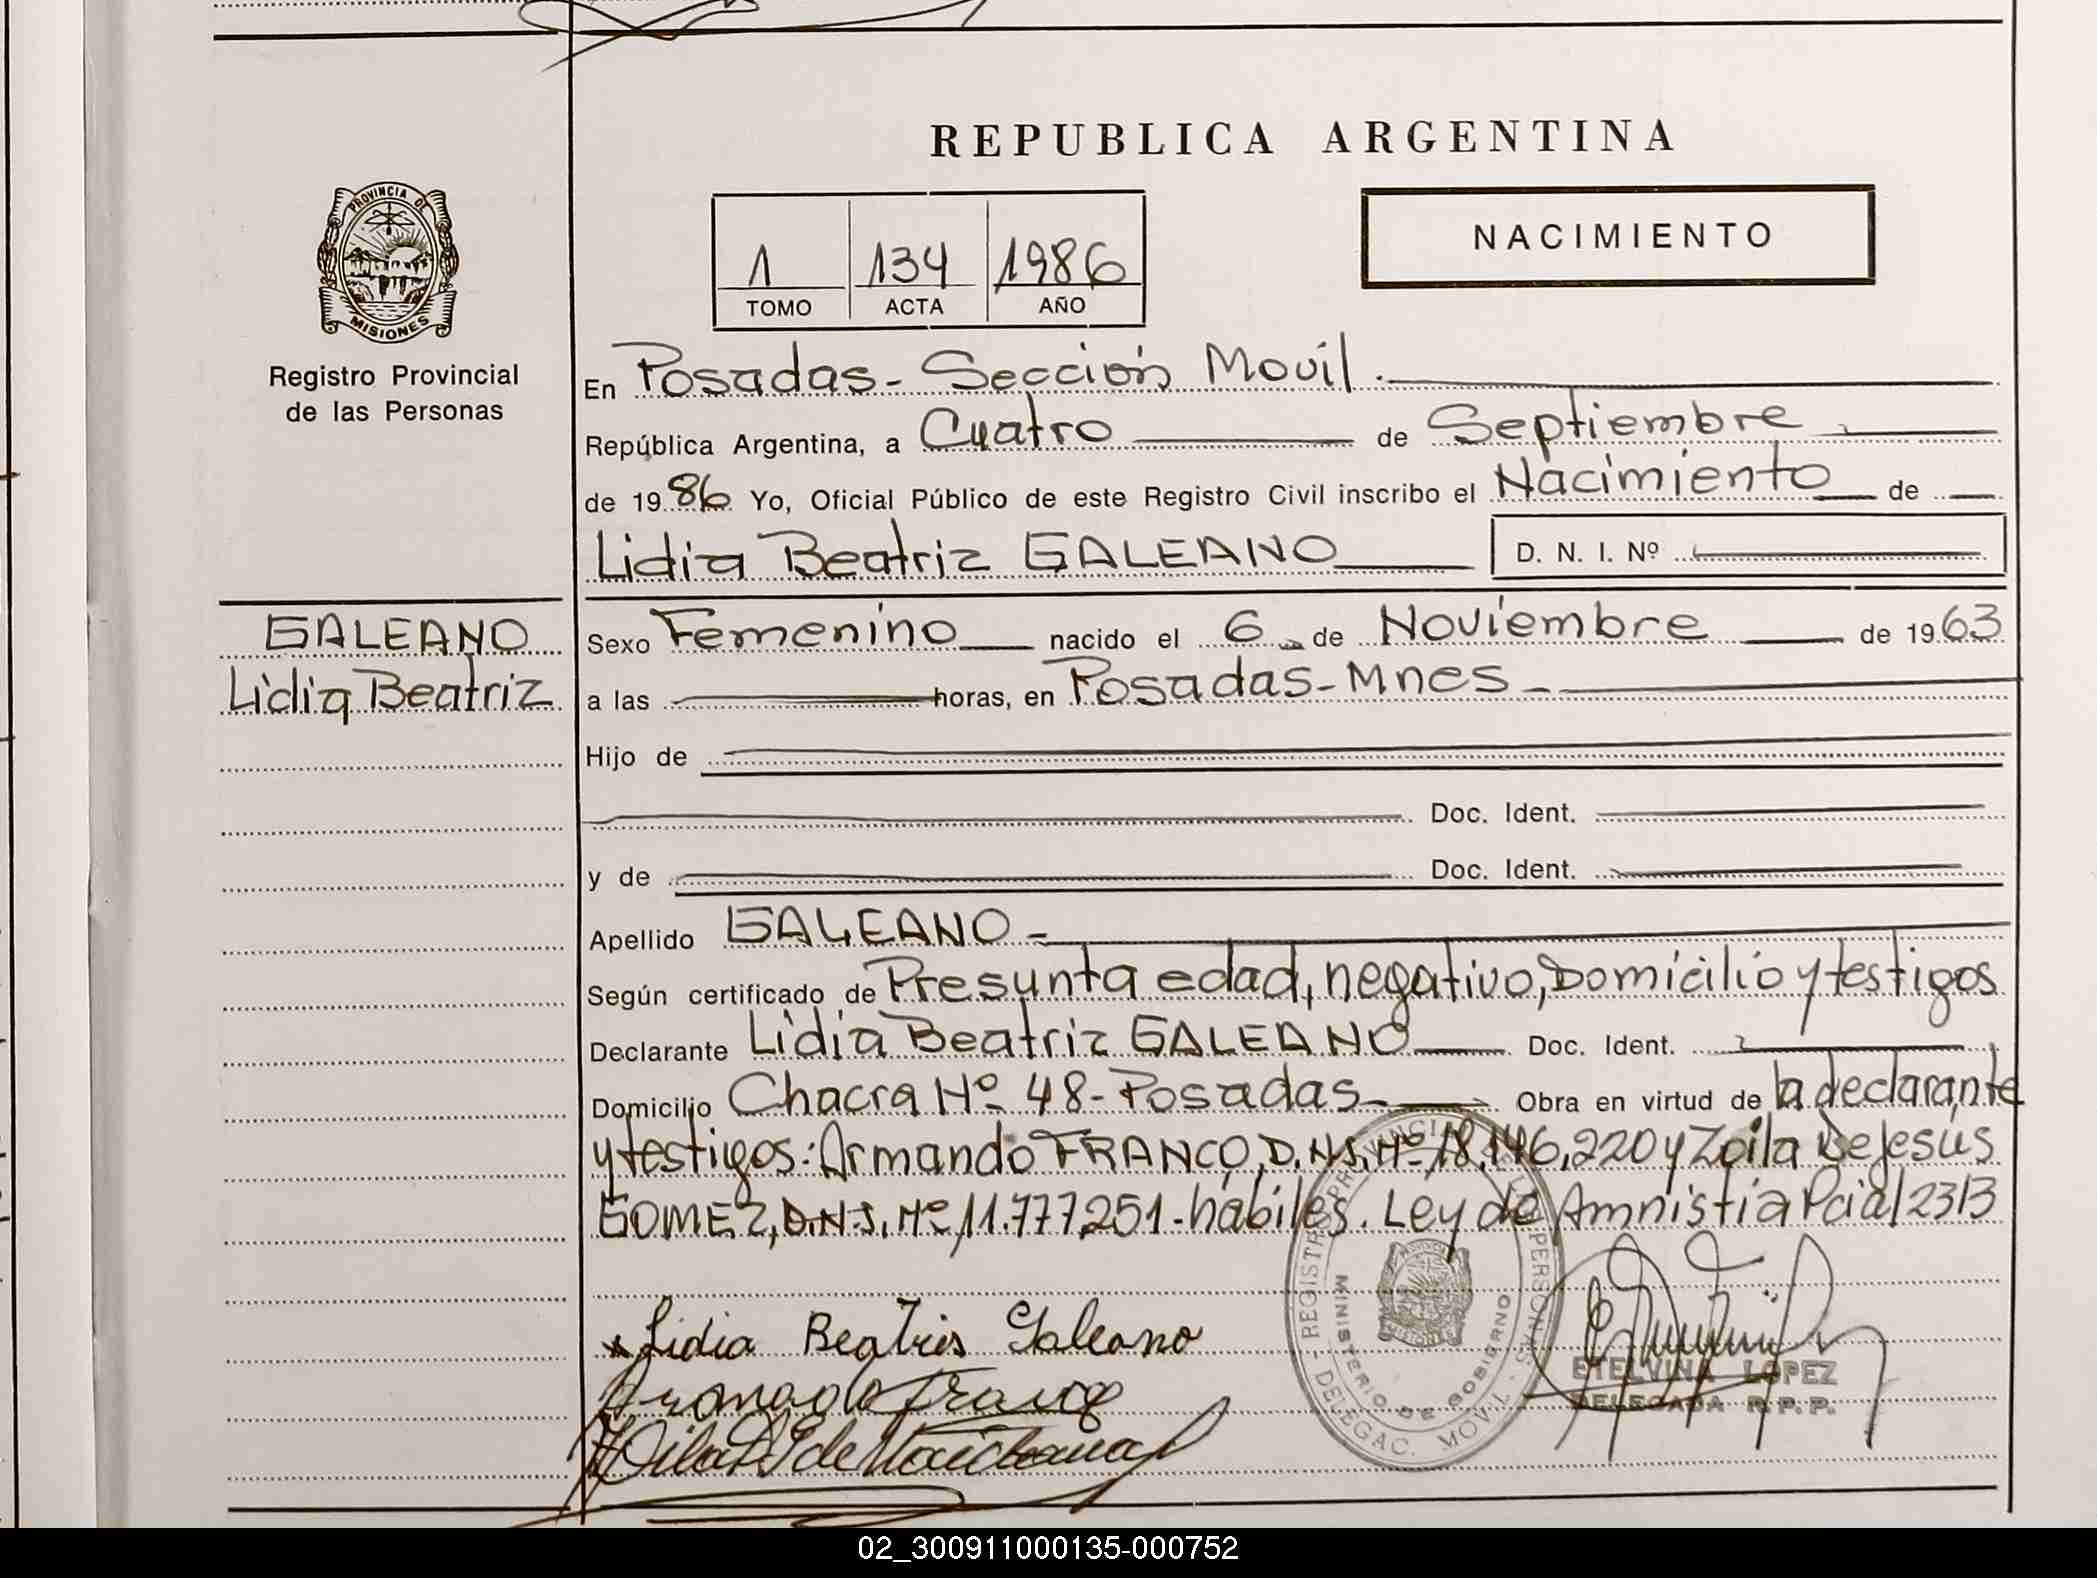 REPUBLICA ARGENTINA
PROVINCIA DE
MISIONES
Registro Provincial
de las Personas
1 134 1986
TOMO ACTA AÑO
NACIMIENTO
En Posadas - Sección Movil.
República Argentina, a Cuatro de Septiembre
de 1986 Yo, Oficial Público de este Registro Civil inscribo el Nacimiento de
Lidia Beatriz GALEANO D. N. I. Nº
GALEANO
Lidia Beatriz
Sexo Femenino nacido el 6 de Noviembre de 1963
a las horas, en Posadas - Mnes -
Hijo de
Doc. Ident.
y de Doc. Ident.
Apellido GALEANO -
Según certificado de Presunta edad, negativo, Domicilio y testigos
Declarante Lidia Beatriz GALEANO Doc. Ident.
Domicilio Chacra Nº 48 - Posadas - Obra en virtud de la declarante
y testigos: Armando FRANCO, D.N.I. Nº 18.146.220 y Zoila De Jesús
GOMEZ, D.N.I. Nº 11.777.251 - hábiles. Ley de Amnistía Pcial 2313
Lidia Beatris Galeano
Armando Franco
REGISTRO PROVINCIAL DE LAS PERSONAS
MINISTERIO DE GOBIERNO
DELEGAC. MOVIL
ETELVINA LOPEZ
DELEGADA R.P.P.
02_300911000135-000752